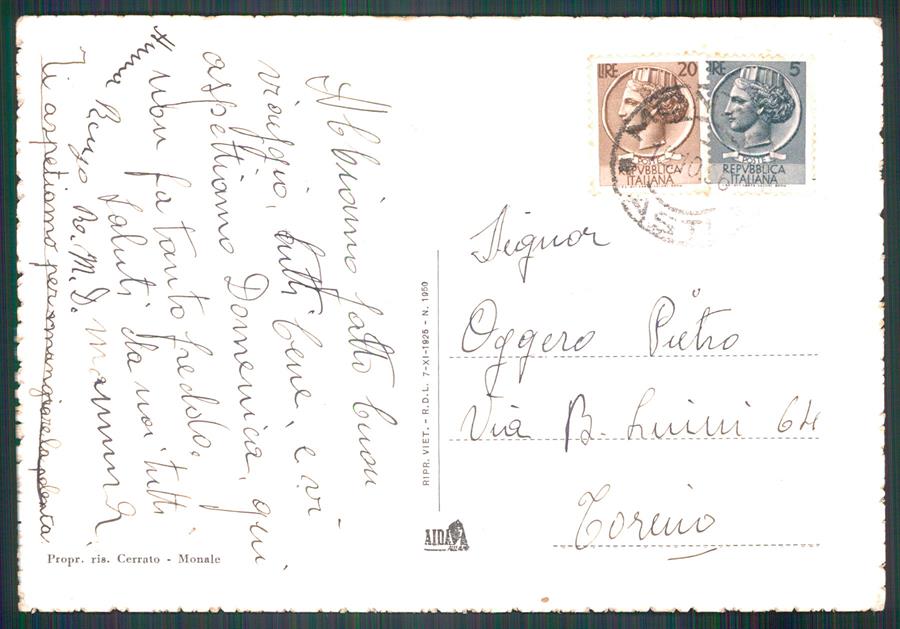 Abbiamo fatto buon
viaggio, tutti bene, e vi
aspettiamo Domenica, qui
non fa tanto freddo.
Saluti da noi tutti
Anna Renzo M. D. mamma
Ti aspetiamo per mangiare la polenta
Propr. ris. Cerrato - Monale
RIPR. VIET. - R.D.L. 7-XI-1925 - N. 1950
AIDA
LIRE 20
POSTE
REPVBBLICA
ITALIANA
IRE 5
POSTE
REPVBBLICA
ITALIANA
ASTI
Signor
Oggero Pietro
Via B. Luini 64
Toreino